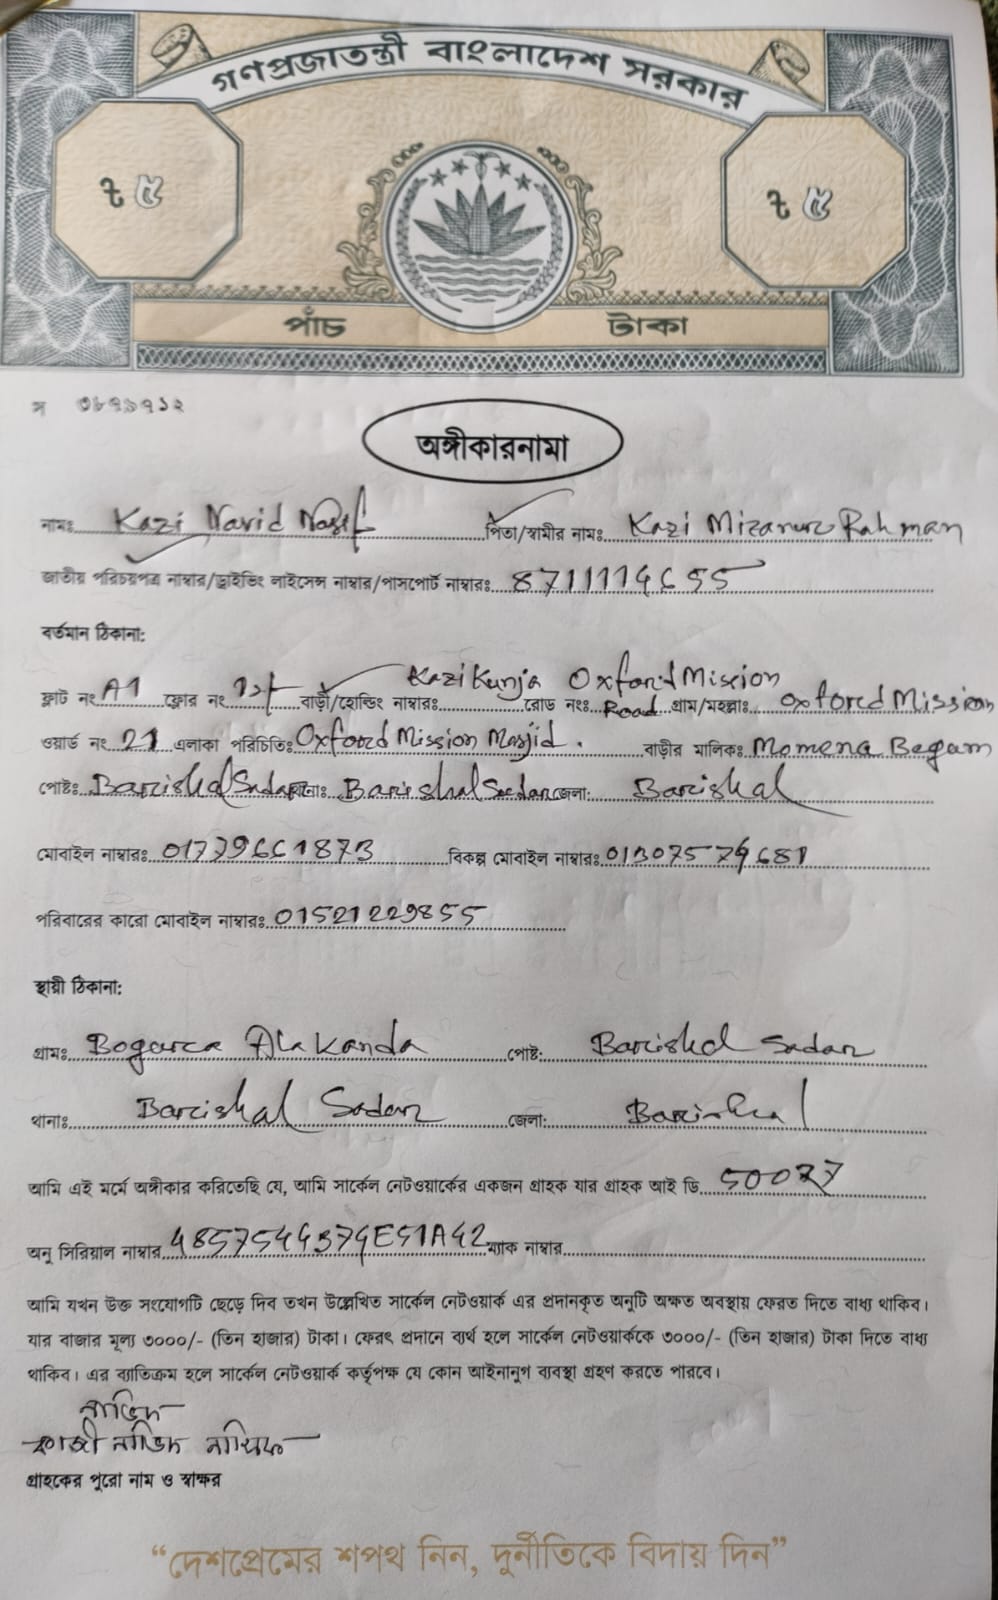 গণপ্রজাতন্ত্রী বাংলাদেশ সরকার
৳ ৫ ৳ ৫
পাঁচ টাকা
স ৩৮৭১৭১২
অঙ্গীকারনামা
নামঃ Kazi Navid Nasif পিতা/স্বামীর নামঃ Kazi Mizanur Rahman
জাতীয় পরিচয়পত্র নাম্বার/ড্রাইভিং লাইসেন্স নাম্বার/পাসপোর্ট নাম্বারঃ 8711114655
বর্তমান ঠিকানা:
ফ্লাট নং A1 ফ্লোর নং 1st বাড়ী/হোল্ডিং নাম্বারঃ Kazi Kunja রোড নংঃ Oxford Mission Road গ্রাম/মহল্লাঃ Oxford Mission
ওয়ার্ড নং 21 এলাকা পরিচিতিঃ Oxford Mission Masjid. বাড়ীর মালিকঃ Momena Begam
পোষ্টঃ Barishal Sadar থানাঃ Barishal Sadar জেলা: Barishal
মোবাইল নাম্বারঃ 01779661873 বিকল্প মোবাইল নাম্বারঃ 01307574681
পরিবারের কারো মোবাইল নাম্বারঃ 01521229855
স্থায়ী ঠিকানা:
গ্রামঃ Bogura Alakanda পোষ্ট: Barishal Sadar
থানাঃ Barishal Sadar জেলা: Barishal
আমি এই মর্মে অঙ্গীকার করিতেছি যে, আমি সার্কেল নেটওয়ার্কের একজন গ্রাহক যার গ্রাহক আই ডি 50027
অনু সিরিয়াল নাম্বার 4857544374E51A42 ম্যাক নাম্বার
আমি যখন উক্ত সংযোগটি ছেড়ে দিব তখন উল্লেখিত সার্কেল নেটওয়ার্ক এর প্রদানকৃত অনুটি অক্ষত অবস্থায় ফেরত দিতে বাধ্য থাকিব।
যার বাজার মূল্য ৩০০০/- (তিন হাজার) টাকা। ফেরৎ প্রদানে ব্যর্থ হলে সার্কেল নেটওয়ার্ককে ৩০০০/- (তিন হাজার) টাকা দিতে বাধ্য
থাকিব। এর ব্যতিক্রম হলে সার্কেল নেটওয়ার্ক কর্তৃপক্ষ যে কোন আইনানুগ ব্যবস্থা গ্রহণ করতে পারবে।
নাভিদ
কাজী নাভিদ নাসিফ
গ্রাহকের পুরো নাম ও স্বাক্ষর
“দেশপ্রেমের শপথ নিন, দুর্নীতিকে বিদায় দিন”